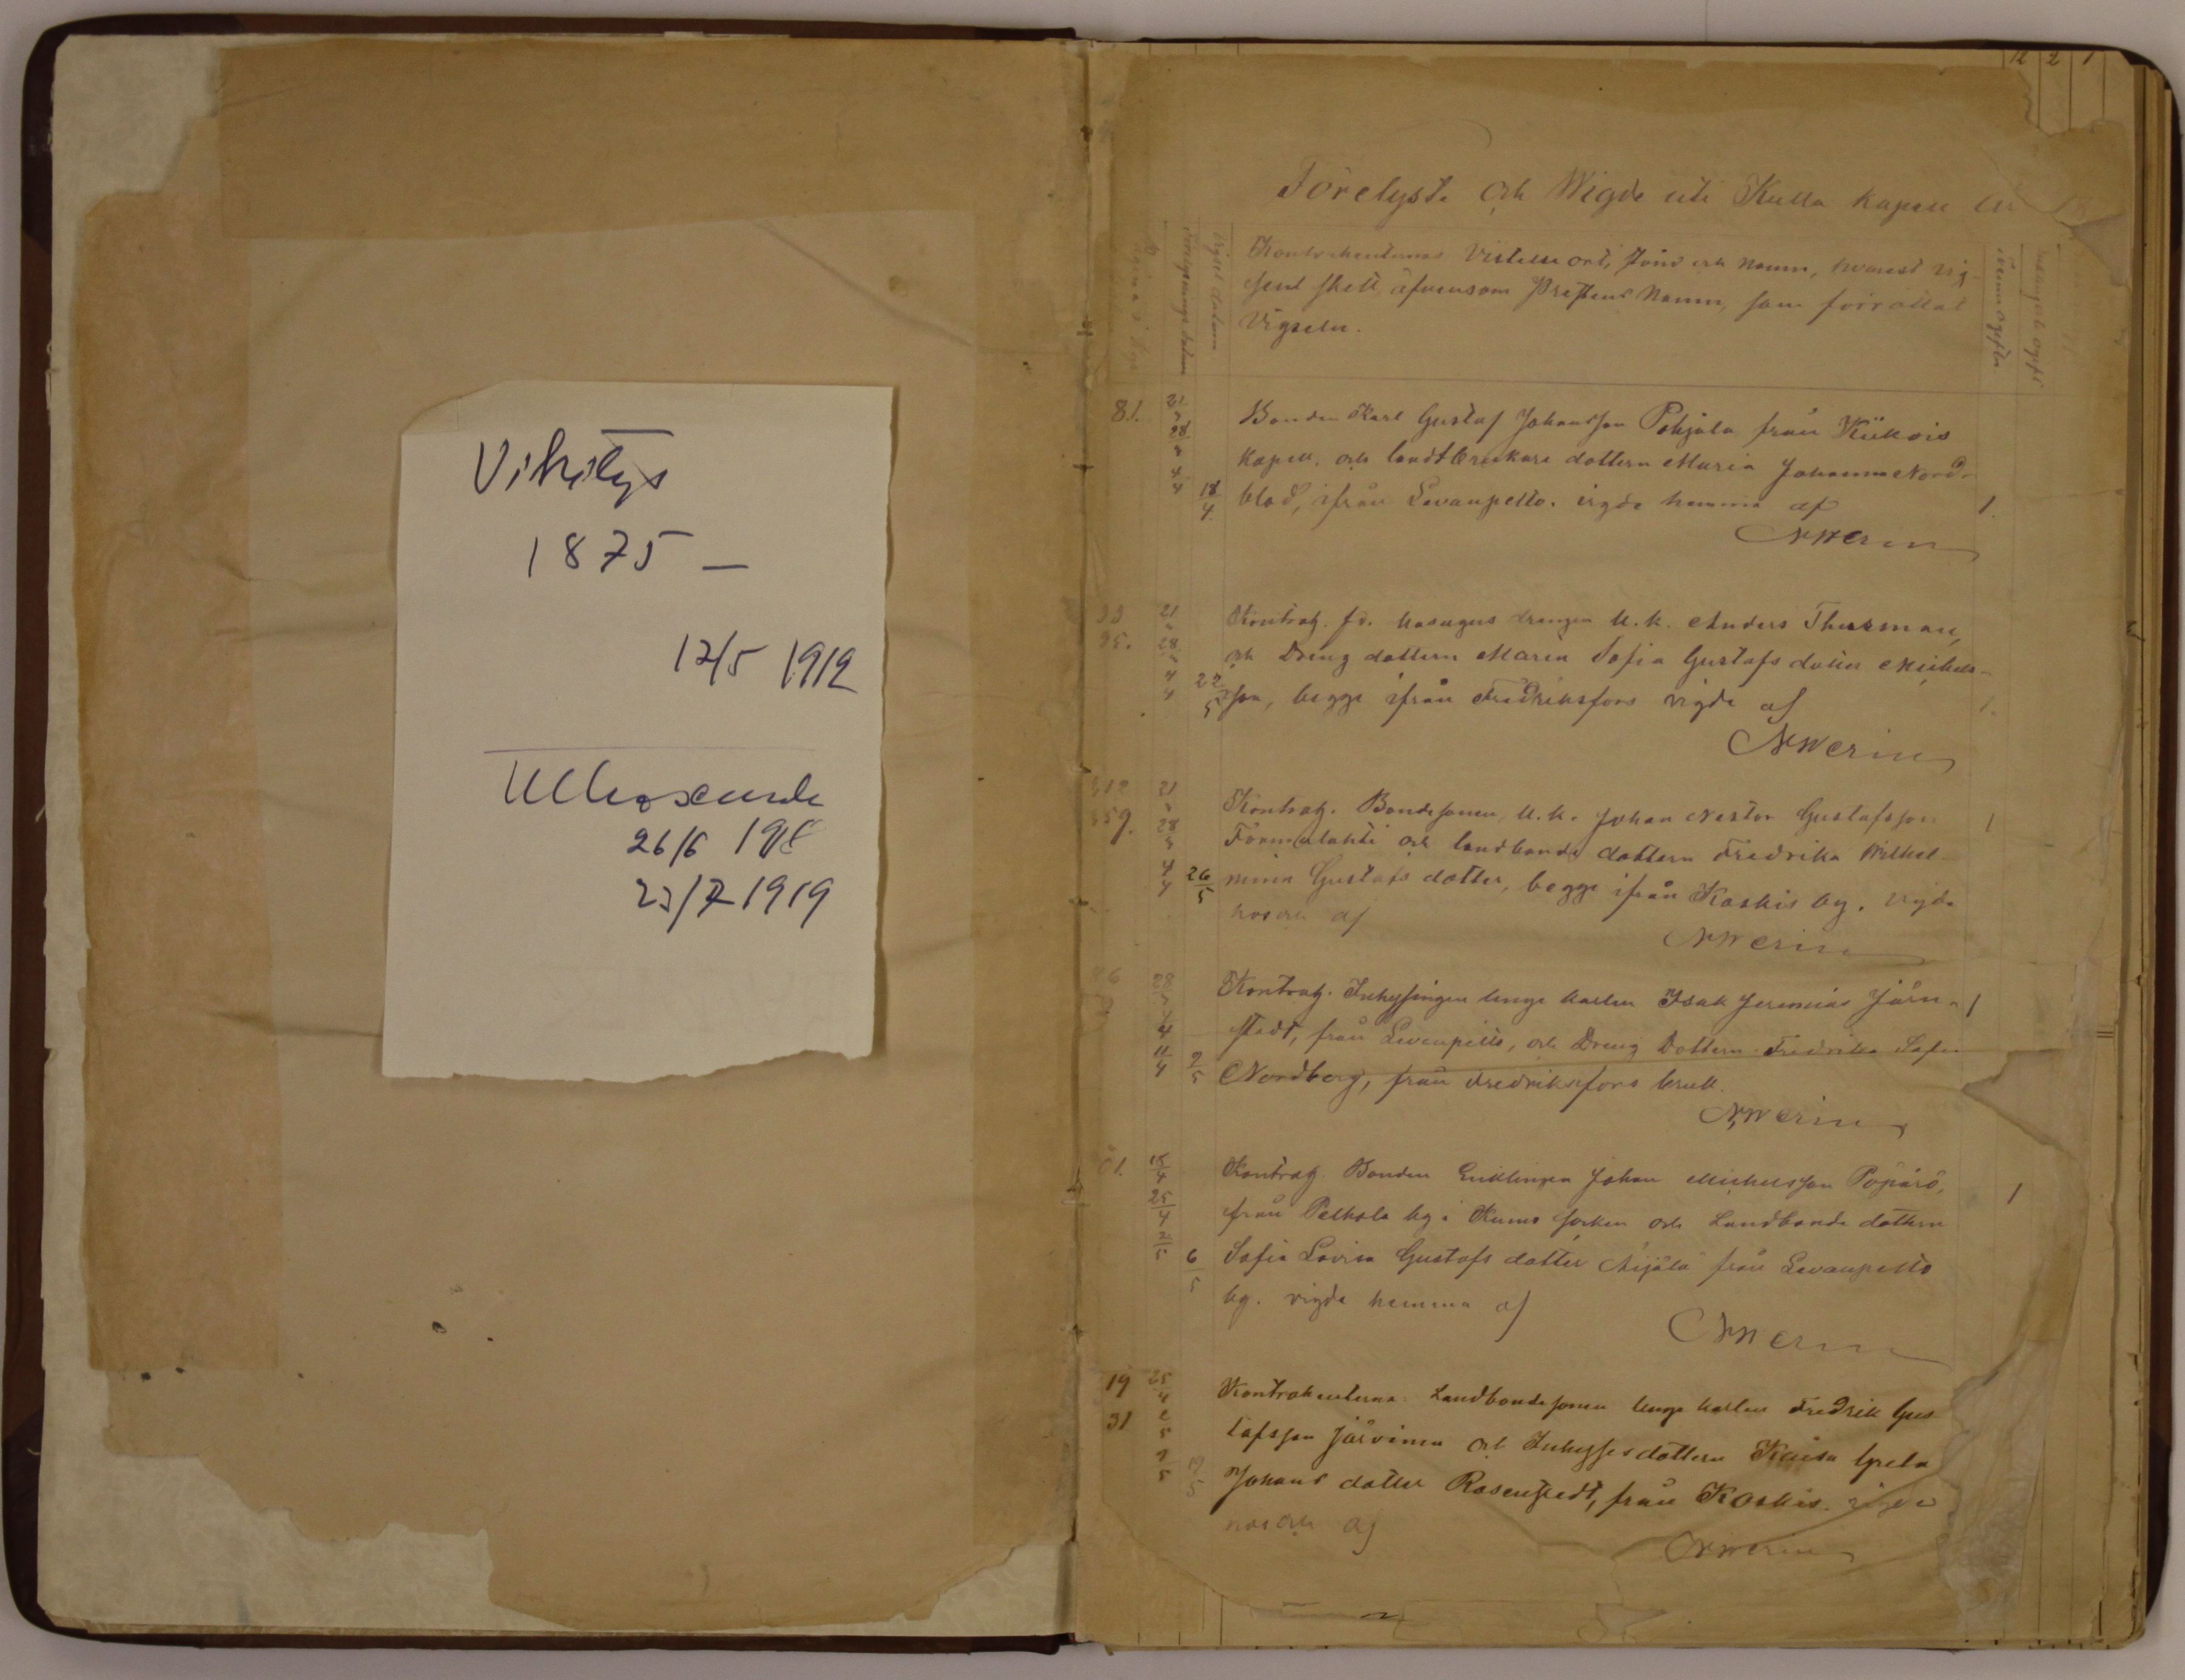 Vihityt
1875 –
12/5 1912
26/6 19
23/7 1919
12 2 1
Förelyste och Wigde uti Kulla kapell
Kontrahenternas Vistelse ort, Stånd och Namn, hvarest vig-
seln skett, äfvensom Prestens Namn, som förrättat
Vigseln.
Vigsel datum
81.
21
28
4
4
18/4
Bonden Karl Gustaf Johansson Pohjala från Kiikois
Kapell. och landtbrukare dottern Maria Johanna Nord-
blad, ifrån Levanpelto. vigde hemma af
1.
NWerin
21
28
4
4
22/5
Kontrah. f.d. drengen U.k. Anders Thurman,
och Dreng dottern Maria Sofia Gustafs dotter Michels-
son, begge ifrån Fredriksfors vigde af
1.
NWerin
21
28
4
4
26/5
Kontrah. Bondesonen, U.k. Johan Nestor Gustafsson
1
och landbonde dottern Fredrika Wilhel-
mina Gustafs dotter, begge ifrån Koskis by. vigde
hos och af
NWerin
28
4
11/4
2/5
Kontrah. Inhysingen unge karlen Isak Jeremias Järn-
1
stedt, från Levanpelto, och Dreng Dottern Fredrika Sofia
Nordberg, från Fredriksfors bruk.
NWerin
01.
18/4
25/4
2/5
6/5
Kontrah. Bonden Enklingen Johan Michelsson
1
från by i Kumo socken och Landbonde dottern
Sofia Lovisa Gustafs dotter från Levanpelto
by. vigde hemma af
NWerin
19
31
25
4
2
5
Kontrahenterna. Landbondesonen Unge karlen Fredrik Gus-
tafsson Järvinen och Inhysesdottern Kaisa Greta
Johans dotter Rosenstedt, från Koskis. vigde
hos och af
NWerin